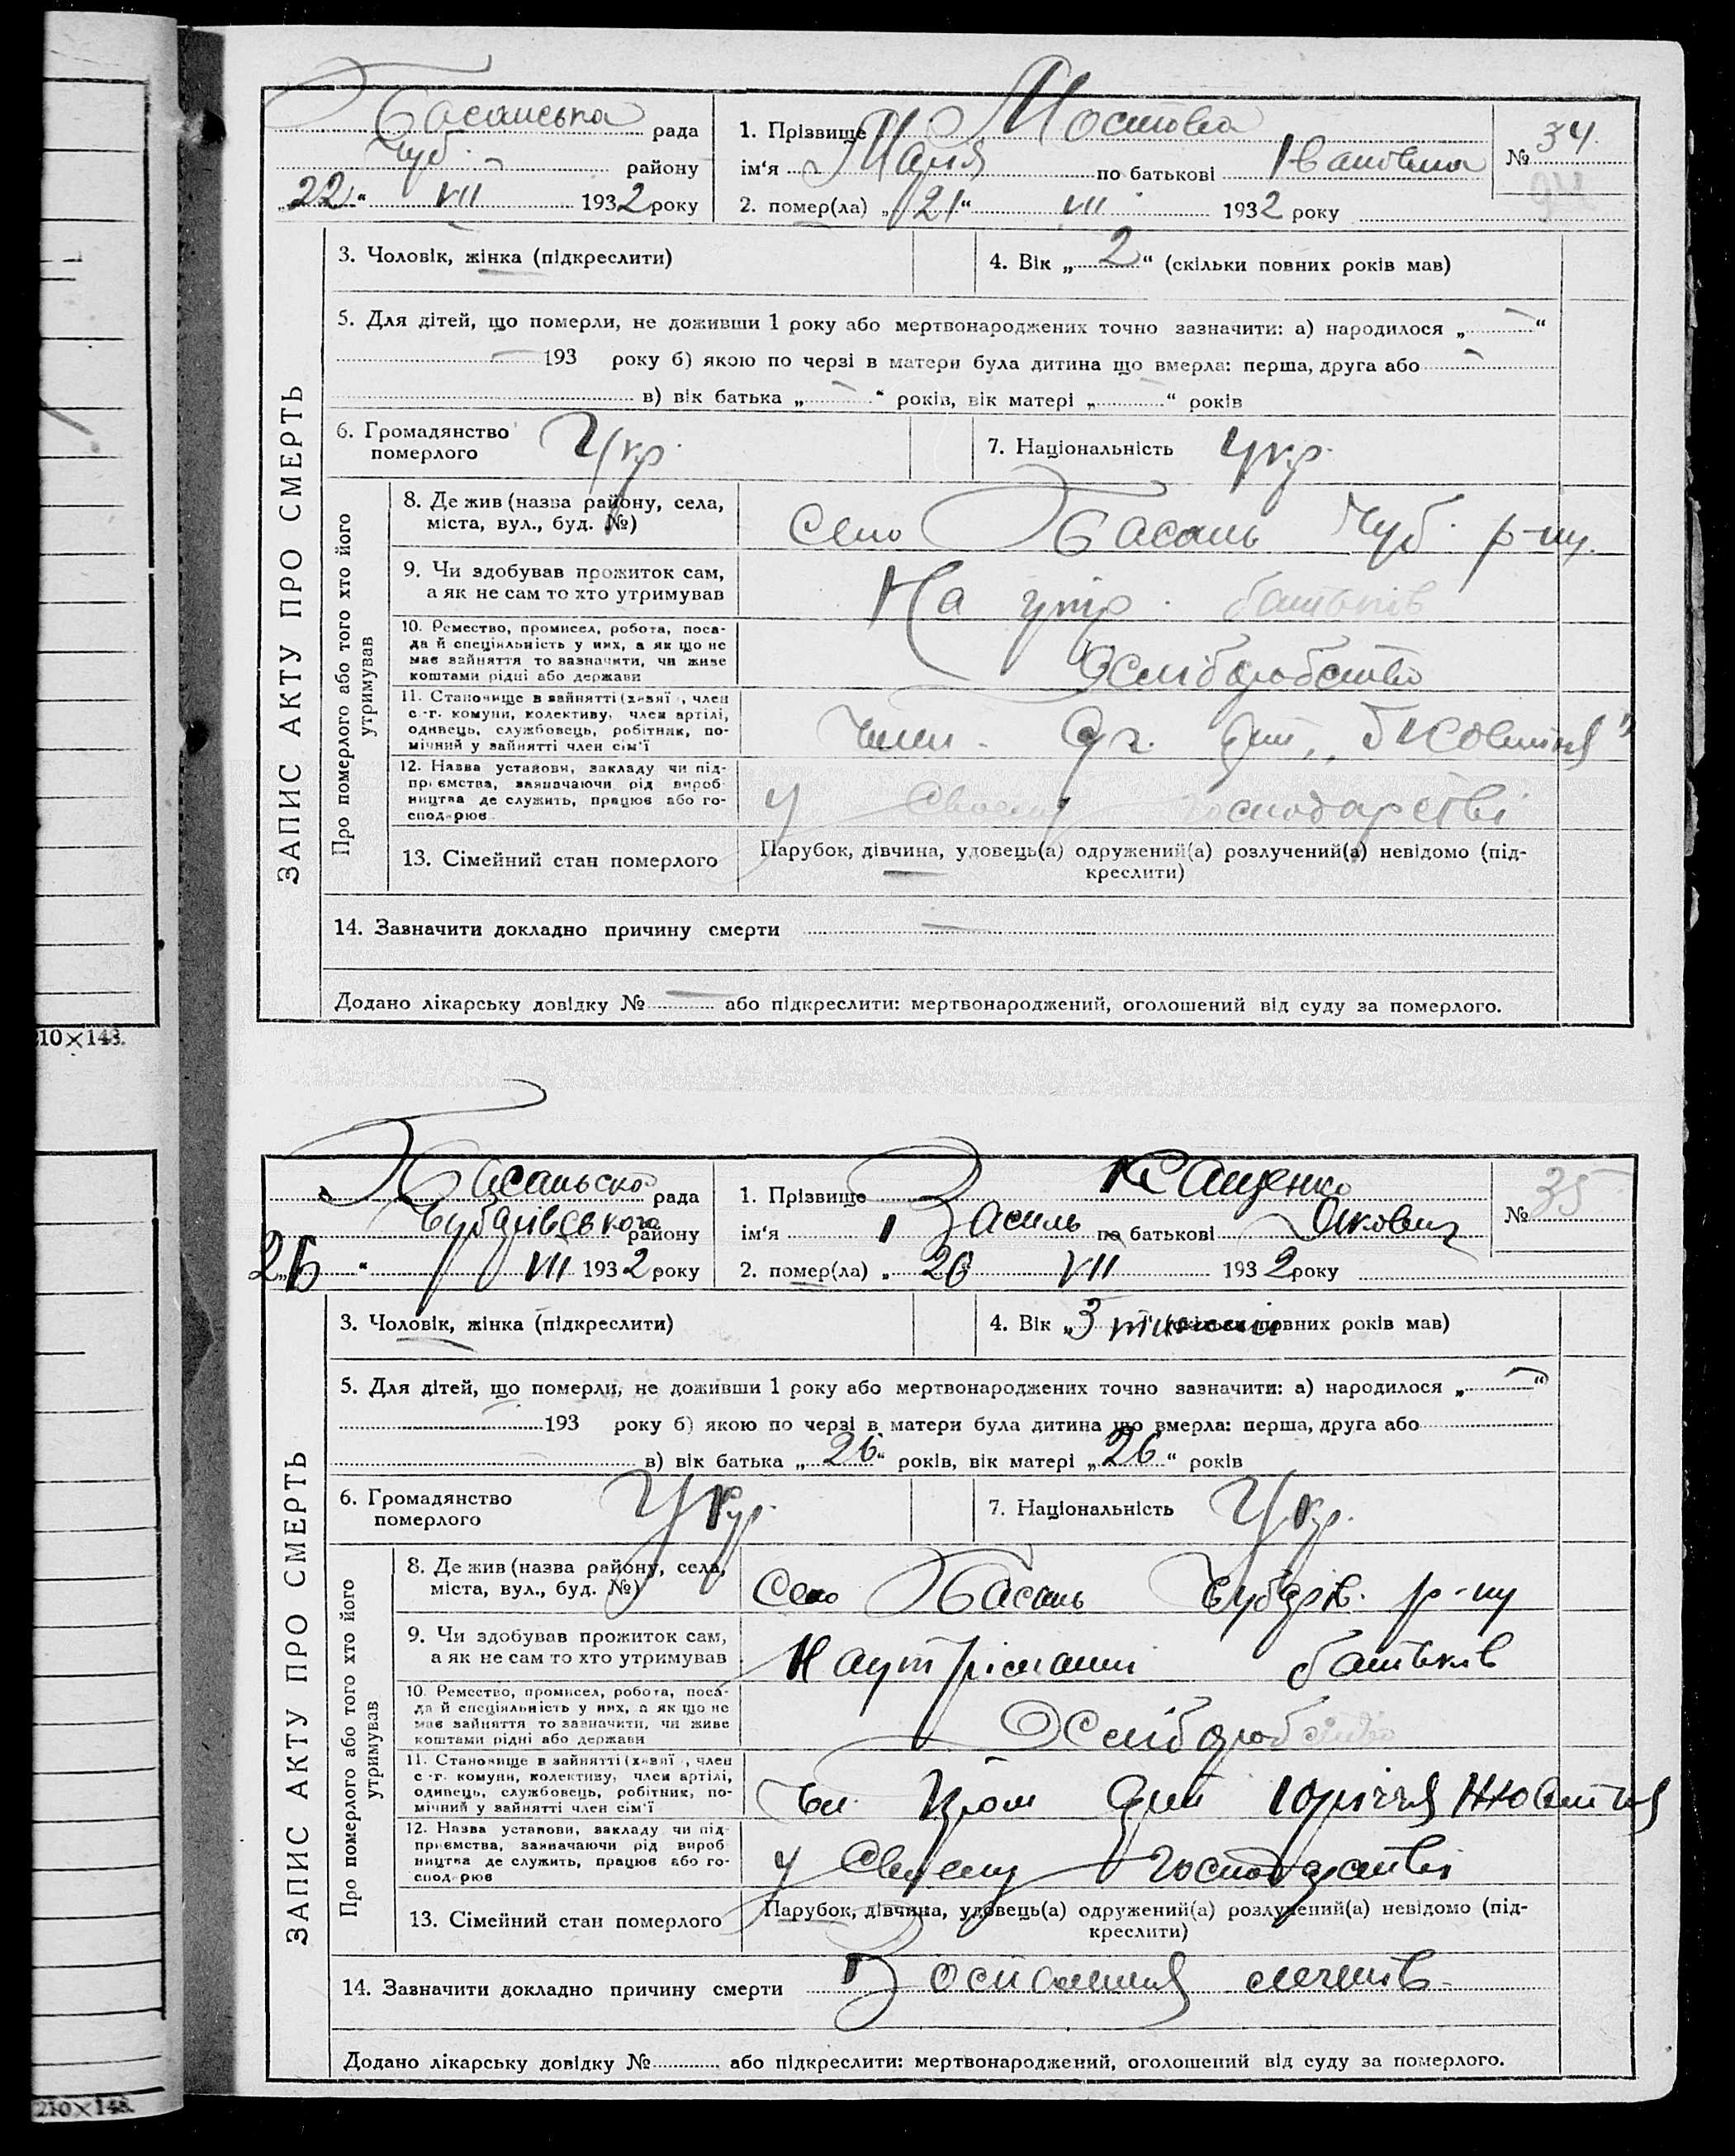 Басанська рада
Чуб. району
„22“ VII 1932 року
1. Прізвище Мостова
ім'я Марія по батькові Івановна
2. помер(ла) „21“ VII 1932 року
№ 34
94
ЗАПИС АКТУ ПРО СМЕРТЬ
3. Чоловік, жінка (підкреслити)
4. Вік „2“ (скільки повних років мав)
5. Для дітей, що померли, не доживши 1 року або мертвонароджених точно зазначити: а) народилося „ — “
— 193 року б) якою по черзі в матери була дитина що вмерла: перша, друга або —
в) вік батька „ — “ років, вік матері „ — “ років
6. Громадянство
померлого Укр.
7. Національність Укр.
Про померлого або того хто його
утримував
8. Де жив (назва району, села,
міста, вул., буд. №)
Село Басань Чуб. р-ну.
9. Чи здобував прожиток сам,
а як не сам то хто утримував
На утр. батьків
10. Ремество, промисел, робота, поса-
да й спеціяльність у них, а як що не
має зайняття то зазначити, чи живе
коштами рідні або держави
Хліборобство
11. Становище в зайнятті (хазяї, член
с.-г. комуни, колективу, член артілі,
одивець, службовець, робітник, по-
мічний у зайнятті член сім'ї
Член. Жовтня"
12. Назва установи, закладу чи під-
приємства, зазначаючи рід вироб-
ництва де служить, працює або го-
сподарює
У своєму господарстві
13. Сімейний стан померлого
Парубок, дівчина, удовець(а) одружений(а) розлучений(а) невідомо (під-
креслити)
14. Зазначити докладно причину смерти —
Додано лікарську довідку № — або підкреслити: мертвонароджений, оголошений від суду за померлого.
10×148.
Басанська рада
Чубарівського району
26 “ VII 1932 року
1. Прізвище Кащенко
ім'я Василь по батькові Якович
2. помер(ла) „ 26 VII 1932 року
№ 35
ЗАПИС АКТУ ПРО СМЕРТЬ
3. Чоловік, жінка (підкреслити)
4. Вік „3 тижні (скільки повних років мав)
5. Для дітей, що померли, не доживши 1 року або мертвонароджених точно зазначити: а) народилося „ — “
193 року б) якою по черзі в матери була дитина що вмерла: перша, друга або
в) вік батька „26“ років, вік матері „26“ років
6. Громадянство
померлого Укр.
7. Національність Укр.
Про померлого або того хто його
утримував
8. Де жив (назва району, села,
міста, вул., буд. №)
Село Басань Чубарів. р-ну
9. Чи здобував прожиток сам,
а як не сам то хто утримував
На утріманні батьків
10. Ремество, промисел, робота, поса-
да й спеціяльність у них, а як що не
має зайняття то зазначити, чи живе
коштами рідні або держави
Хліборобство
11. Становище в зайнятті (хазяї, член
с.-г. комуни, колективу, член артілі,
одивець, службовець, робітник, по-
мічний у зайнятті член сім'ї
Чл. 10річчя Жовтня
12. Назва установи, закладу чи під-
приємства, зазначаючи рід вироб-
ництва де служить, працює або го-
сподарює
У своєму господарстві
13. Сімейний стан померлого
Парубок, дівчина, удовець(а) одружений(а) розлучений(а) невідомо (під-
креслити)
14. Зазначити докладно причину смерти Воспалення легенів
Додано лікарську довідку № або підкреслити: мертвонароджений, оголошений від суду за померлого.
210×148.